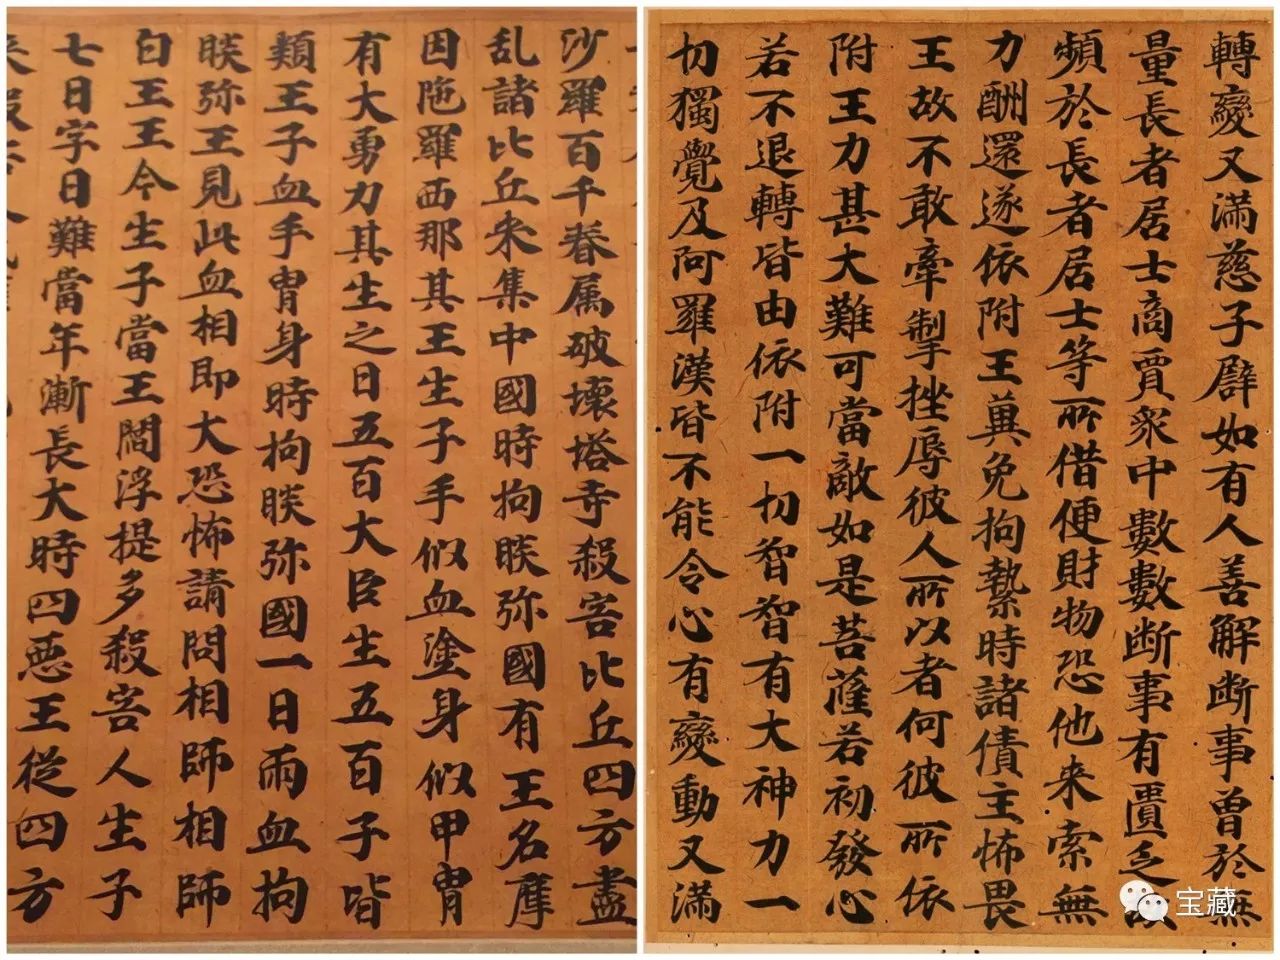 沙羅百千眷属破壞塔寺殺害比丘四方盡
乱諸比丘来集中國時拘睒弥國有王名摩
因陁羅西那其王生子手似血塗身似甲胄
有大勇力其生之日五百大臣生五百子皆
類王子血手胄身時拘睒弥國一日雨血拘
睒弥王見此血相即大恐怖請問相師相師
白王王今生子當王閻浮提多殺害人生子
七日字日難當年漸長大時四惡王從四方
轉變又滿慈子譬如有人善解断事曾於無
量長者居士商賈衆中數數断事有匱乏
頻於長者居士等所借便財物恐他来索無
力酬還遂依附王冀免拘縶時諸債主怖畏
王故不敢牽掣挫辱彼人所以者何彼所依
附王力甚大難可當敵如是菩薩若初發心
若不退轉皆由依附一切智智有大神力一
切獨覺及阿羅漢皆不能令心有變動又滿
宝藏